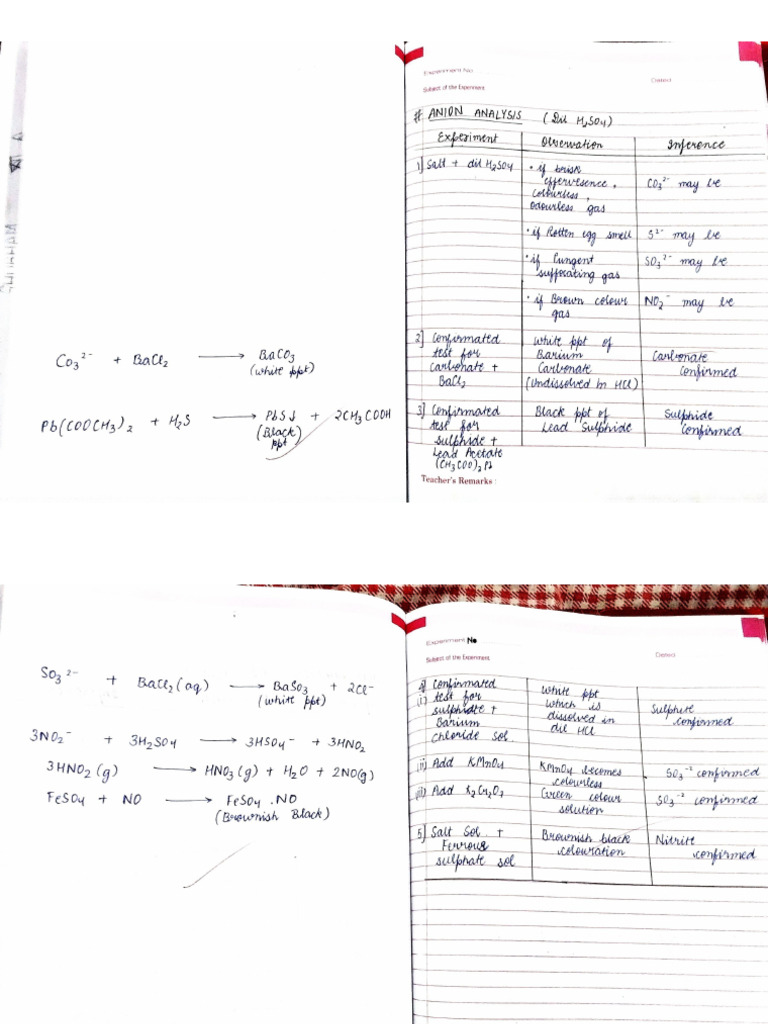 Experiment No
Dated
Subject of the Experiment
# ANION ANALYSIS (Dil H₂SO₄)
Experiment Observation Inference
1] Salt + dil H₂SO₄ • if brisk
effervesence,
colourless,
odourless gas
CO₃²⁻ may be
• if Rotten egg smell S²⁻ may be
• if Pungent
suffocating gas
SO₃²⁻ may be
• if Brown colour
gas
NO₂⁻ may be
2] Confirmated
test for
carbonate +
BaCl₂
White ppt of
Barium
Carbonate
(Undissolved in HCl)
Carbonate
confirmed
3] Confirmated
test for
sulphide +
Lead Acetate
(CH₃COO)₂Pb
Black ppt of
Lead Sulphide
Sulphide
confirmed
Teacher's Remarks :
Co₃²⁻ + BaCl₂ ⟶ BaCO₃
(white ppt)
Pb(COOCH₃)₂ + H₂S ⟶ PbS↓ + 2CH₃COOH
(Black
ppt)
SO₃²⁻ + BaCl₂(aq) ⟶ BaSO₃ + 2Cl⁻
(white ppt)
3NO₂⁻ + 3H₂SO₄ ⟶ 3HSO₄⁻ + 3HNO₂
3HNO₂(g) ⟶ HNO₃(g) + H₂O + 2NO(g)
FeSO₄ + NO ⟶ FeSO₄.NO
(Brownish Black)
Experiment No
Dated
Subject of the Experiment
Confirmated
(i) test for
+
Barium
Chloride sol
White ppt
which is
dissolved in
dil HCl
Sulphite
confirmed
(ii) Add KMnO₄ KMnO₄ becomes
colourless
SO₃⁻² confirmed
(iii) Add K₂Cr₂O₇ Green colour
solution
SO₃⁻² confirmed
5] Salt Sol. +
Ferrous
sulphate sol
Brownish black
colouration
Nitrite
confirmed